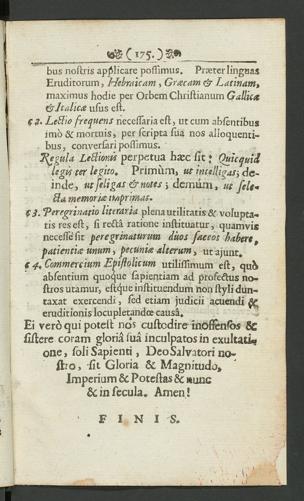 (175.)
bus nostris applicare possimus. Præter linguas
Eruditorum, Hebraicam, Græcam & Latinam,
maximus hodie per Orbem Christianum Gallicæ
& Italicæ usus est.
§ 2. Lectio frequens necessaria est, ut cum absentibus
imò & mortuis, per scripta sua nos alloquenti-
bus, conversari possimus.
Regula Lectionis perpetua hæc sit: Quicquid
legis ter legito. Primùm, ut intelligas; de-
inde, ut seligas & notes; demùm, ut sele-
cta memoriæ imprimas.
§ 3. Peregrinatio literaria plena utilitatis & volupta-
tis res est, si rectâ ratione instituatur, quamvis
necesse sit peregrinaturum duos saccos habere,
patientiæ unum, pecuniæ alterum, ut ajunt.
§ 4. Commercium Epistolicum utilissimum est, quò
absentium quoque sapientiam ad profectus no-
stros utamur, estque instituendum non styli dun-
taxat exercendi, sed etiam judicii acuendi &
eruditionis locupletandæ causâ.
Ei verò qui potest nos custodire inoffensos &
sistere coram gloriâ suâ inculpatos in exultati-
one, soli Sapienti, Deo Salvatori no-
stro, sit Gloria & Magnitudo,
Imperium & Potestas & nunc
& in secula. Amen!
FINIS.